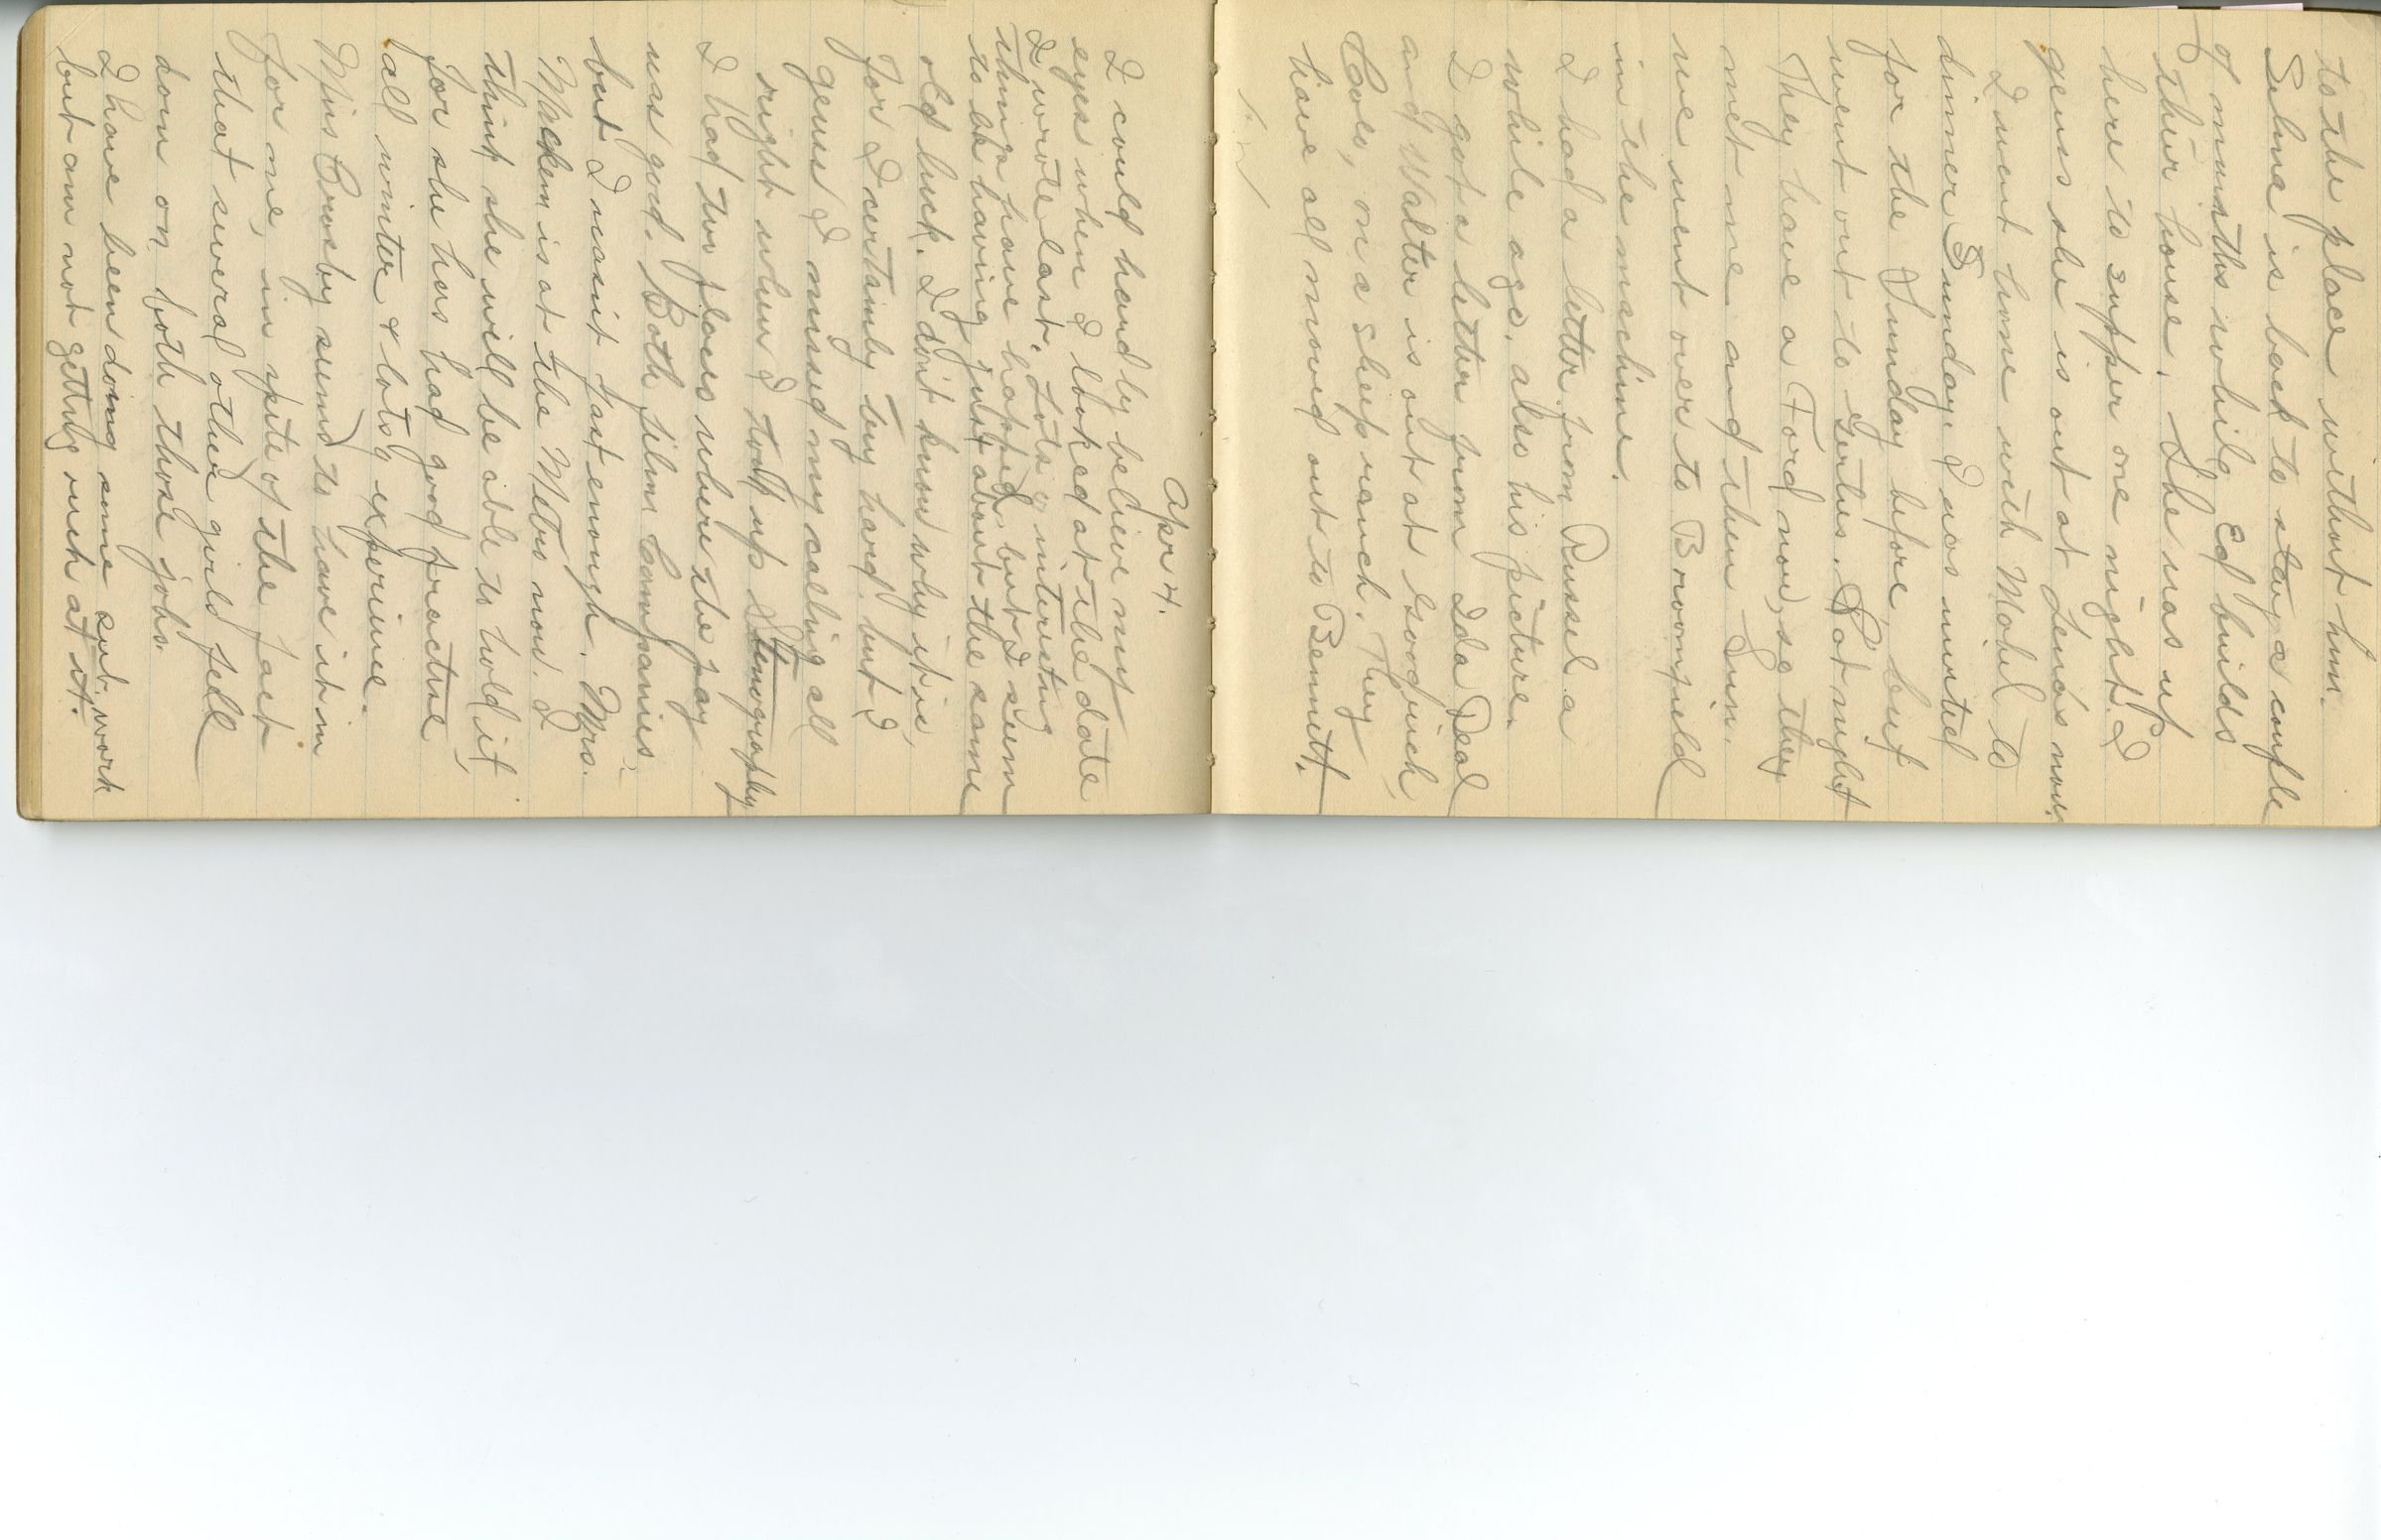 to the place without him.
Selma is back to stay a couple
of months while Ed builds
their house. She was up
here to supper one night. I
guess she is out at Lena's now.
I went home with Mabel to
dinner Sunday. I was invited
for the Sunday before, but
went out to Gerties. Sat night
They have a Ford now, se they
met me and then Sun.
we went over to Broomfield
in the machine.
I had a letter from Russel a
while ago, also his picture.
I got a letter from Ida Deal
and Walter is out at Goodrich,
Colo, on a sheep ranch. They
have all moved out to Bennett.
Apr 4.
I could hardly believe my
eyes when I looked at the date
I wrote last. Lots of interesting
things have happed, but I seem
to be having just about the same
old luck. I don't know why it is,
for I certainly try hard, but I
guess I missed my calling all
right when I took up Stenography
I had two places where the pay
was good. Both film Companies,
but I wasnt fast enough. Mrs.
Macken is at the Metro now. I
think she will be able to hold it,
for she has had good practice
all winter & lots of experience.
Miss Crosby seems to have it in
for me, in spite of the fact
that several other girls fell
down on both those jobs.
I have been doing some sub. work
but am not getting rich at it.